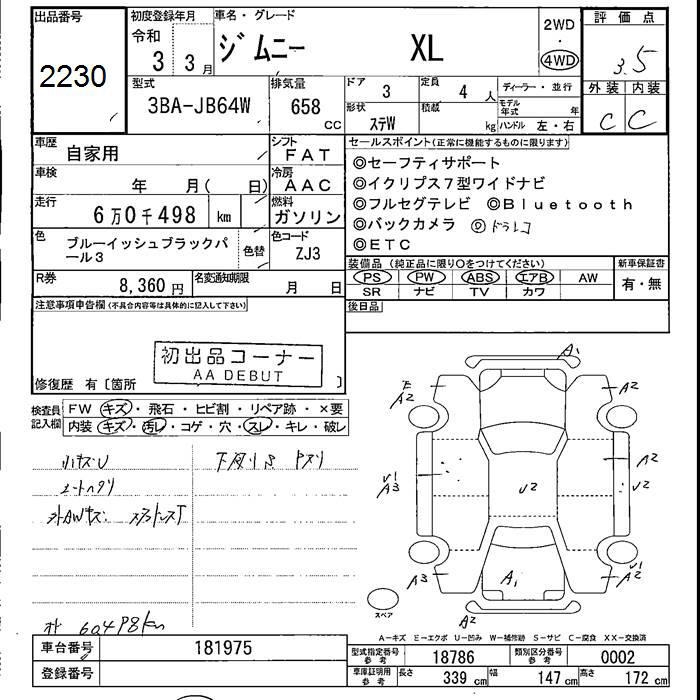 出品番号
2230
初度登録年月
令和
3 3月
車名・グレード
ジムニー XL
2WD
・
4WD
評価点
3.5
外装 内装
C C
型式
3BA-JB64W
排気量
658 cc
ドア
3
定員
4 人
形状
ステW
積載
kg
ディーラー・並行
モデル年式 年
ハンドル 左・右
車歴
自家用
シフト
FAT
車検
年 月( 日)
冷房
AAC
走行
6万0千498 km
燃料
ガソリン
色
ブルーイッシュブラックパール3
色替
色コード
ZJ3
R券
8,360円
名変通知期限
月 日
セールスポイント(正常に機能するものに限ります)
◎セーフティサポート
◎イクリプス7型ワイドナビ
◎フルセグテレビ ◎Bluetooth
◎バックカメラ ◎ドラレコ
◎ETC
装備品(純正品に限り○をつけてください)
PS PW ABS エアB AW
SR ナビ TV カワ
新車保証書
有・無
後日品
注意事項申告欄(不具合内容等は具体的に記入して下さい)
初出品コーナー
AA DEBUT
修復歴 有〔箇所 〕
検査員記入欄
FW キズ・飛石・ヒビ割・リペア跡・×要
内装 キズ・汚レ・コゲ・穴・スレ・キレ・破レ
小キズU
シートヘタリ
下廻りS
外AWキズ
オド 60498km
A1
E
A2
A2
U1
A3
A2
U2
U2
A3
A1
U1
A2
A2
スペア
A−キズ E−エクボ U−凹み W−補修跡 S−サビ C−腐食 XX−交換済
車台番号
181975
登録番号
型式指定番号 参考
18786
類別区分番号 参考
0002
車庫証明用 参考
長さ 339cm 幅 147cm 高さ 172cm